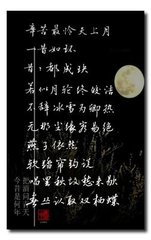 辛苦最怜天上月
一昔如环
昔昔都成玦
若似月轮终皎洁
不辞冰雪为卿热
无那尘缘容易绝
燕子依然
软踏帘钩说
唱罢秋坟愁未歇
春丛认取双栖蝶
把酒问青天
今昔是何年